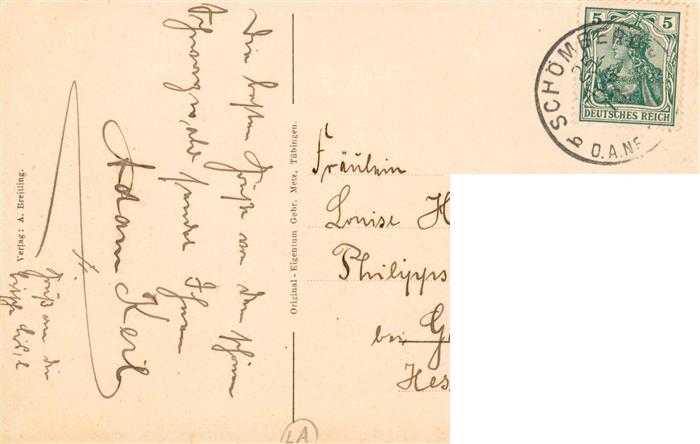 Die besten Grüße von dem schönen
Schwarzwald sendet Ihnen
Adam Keil
Gruß an die
Verlag: A. Breitling.
Original-Eigentum Gebr. Metz, Tübingen.
5 5
DEUTSCHES REICH
SCHÖMBERG
O.A.NE
Fräulein
Louise H
Philipps
bei G
Hes
LA